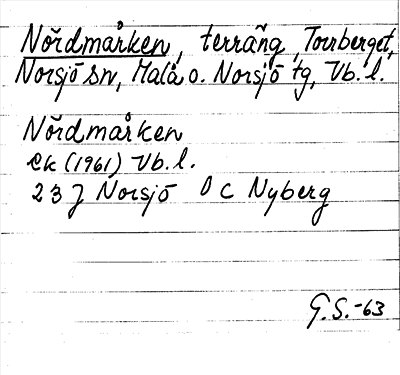 Nordmarken, terräng, Torrberget,
Norsjö sn, Malå o. Norsjö tg, Vb. l.
Nordmarken
Ek (1961) Vb. l.
23 J Norsjö 0 c Nyberg
G. S. -63